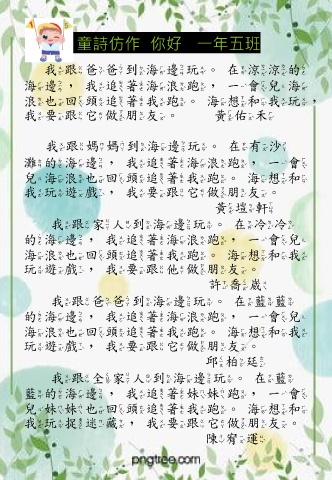 童詩仿作 你好 一年五班
我跟爸爸到海邊玩。在涼涼的
海邊，我追著海浪跑，一會兒海
浪也回頭追著我跑。海想和我玩，
我要跟它做朋友。 黃佑禾
我跟媽媽到海邊玩。在有沙
灘的海邊，我追著海浪跑，一會
兒海浪也回頭追著我跑。海想和
我玩遊戲，我要跟它做朋友。
黃塏軒
我跟家人到海邊玩。在冷冷
的海邊，我追著海浪跑，一會兒
海浪也回頭追著我跑。海想和我
玩遊戲，我要跟他做朋友。
許喬崴
我跟爸爸到海邊玩。在藍藍
的海邊，我追著海浪跑，一會兒
海浪也回頭追著我跑。海想和我
玩遊戲，我要跟它做朋友。
邱柏廷
我跟全家人到海邊玩。在藍
藍的海邊，我追著妹妹跑，一會
兒妹妹也回頭追著我跑。海想和
我玩捉迷藏，我要跟它做朋友。
陳宥運
pngtree.com